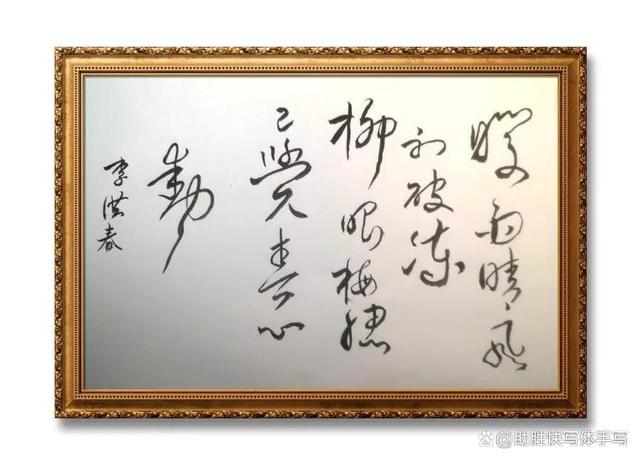 暖雨晴风
初破冻
柳眼梅腮
已觉春心
動
李洪春
@助胜快写体手写